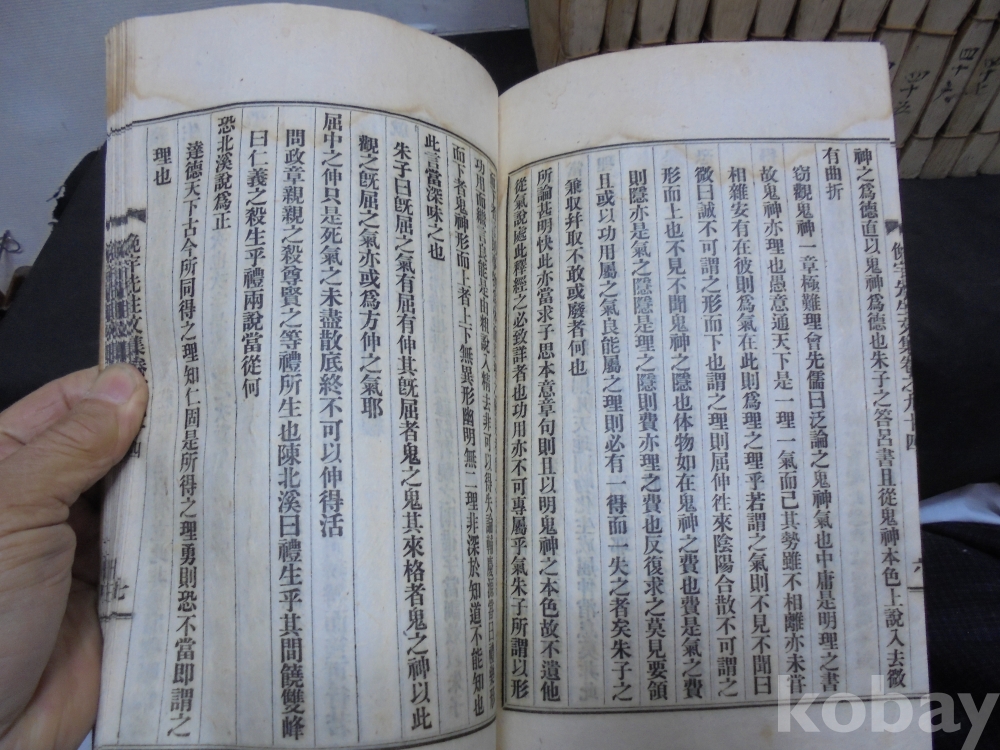 神之爲德直以鬼神爲德也朱子之答呂書且從鬼神本色上說入去微
有曲折
竊觀鬼神一章極難理會先儒曰泛論之鬼神氣也中庸是明理之書
故鬼神亦理也愚意通天下是一理一氣而已其勢雖不相離亦未嘗
相雜安有在彼則爲氣在此則爲理之理乎若謂之氣則不見不聞曰
微曰誠不可謂之形而下也謂之理則屈伸往來陰陽合散不可謂之
形而上也不見不聞鬼神之隱也体物如在鬼神之費也費是氣之費
則隱亦是氣之隱隱是理之隱則費亦理之費也反復求之莫見要領
且或以功用屬之氣良能屬之理則必有一得而一失之者矣朱子之
兼収幷取不敢或廢者何也
所論甚明快此亦當求子思本意章句則且以明鬼神之本色故不遺他
從氣說處此釋經之必致詳者也功用亦不可專屬乎氣朱子所謂以形
俛宇先生文集卷之九十四
六
功用而繼言良能是由粗說入精去非可以得失論
而下者鬼神形而上者上下無異形幽明無二理非深於知道不能知也
此言當深味之也
朱子曰旣屈之氣有屈有伸其旣屈者鬼之鬼其來格者鬼之神以此
觀之旣屈之氣亦或爲方伸之氣耶
屈中之伸只是死氣之未盡散底終不可以伸得活
問政章親親之殺尊賢之等禮所生也陳北溪曰禮生乎其間饒雙峰
曰仁義之殺生乎禮兩說當從何
恐北溪說爲正
達德天下古今所同得之理知仁固是所得之理勇則恐不當即謂之
理也
俛宇先生文集卷
四
七
四十六
kobay